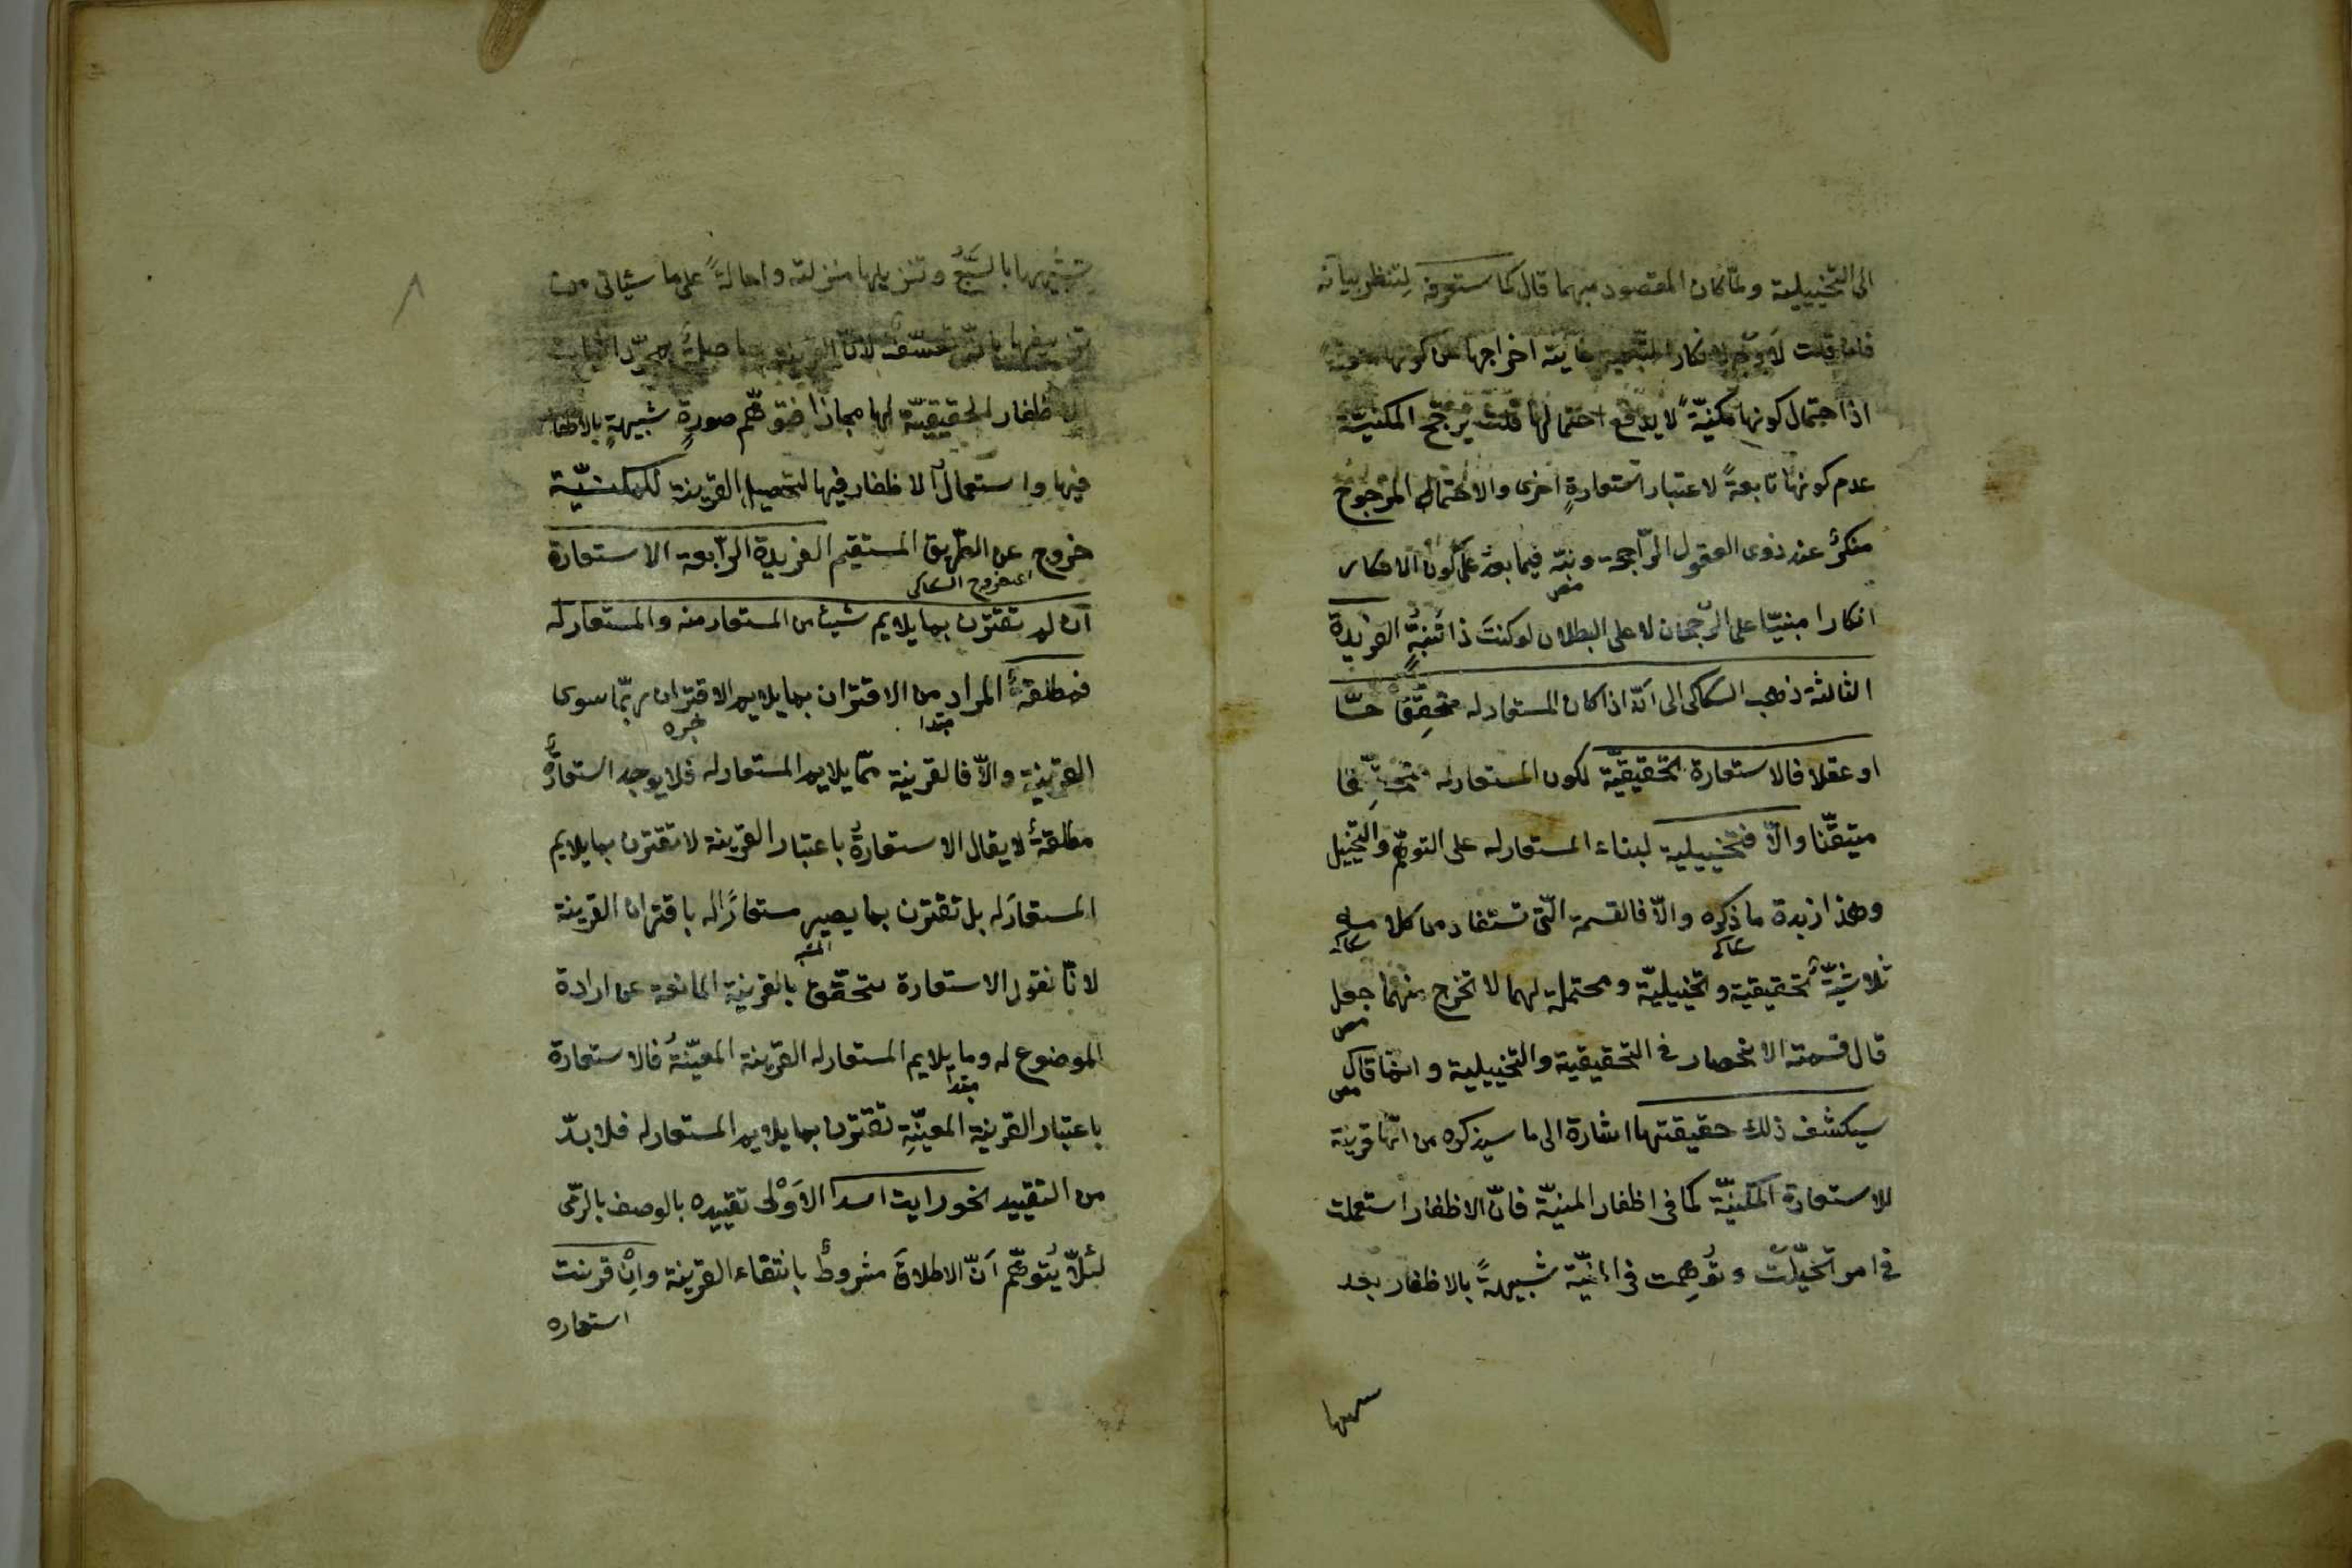 الى التخييلية ولمّا كان المقصود مبهما قال كما ستعرفه لتنظر بيانه
فان قلت لا وجه لانكار التبعية غاية اخراجها من كونها
اذ احتمال كونها مكنيّةً لا يدفع احتمالها قلت يرجّح المكنيّة
عدم كونها تابعةً لاعتبار استعارةٍ اخرى والاحتمال المرجوح
منكرٌ عند ذوى العقول الرّاجحة ونبّه فيما بعد على كون الانكار
انكارا مبنيّا على الرّجحان لا على البطلان لو كنتَ ذا نُبْهٍ الفريدة
الثالثة ذهب السكاكى الى انّه اذا كان المستعار له متحقِّقًا حسّا
او عقلا فالاستعارة تحقيقيّة لكون المستعار له متحقِّقا
متيقّنا والّا فتخييلية لبناء المستعار له على التوهّم والتخييل
وهذا زبدة ما ذكره والّا فالقسمة الّتى تستفاد من كلامه
سكاكى
سكاكى
ثلاثيّةٌ تحقيقية وتخييليّة ومحتملة لهما لا تخرج منهما جعل
مص
قال قسمته الانحصار فى التحقيقية والتخييلية وانّما قال
مص
سيكشف ذلك حقيقتها اشارة الى ما سيذكره من انّها قرينة
للاستعارة المكنيّة كما فى اظفار المنيّة فانّ الاظفار استعملت
فى امر تخيّلت وتُوهِّمت فى المنيّة شبيهةً بالاظفار بعد
تشبيهها
تشبيهها بالسَّبُع وتنزيلها منزلته واحالةً على ما سيأتى من
تزييفها بانّه تعسّف لانّ القرينة حاصلةٌ بمجرّد اثبات
الاظفار الحقيقيّة لها مجازا فتوهّم صورةٍ شبيهةٍ بالاظفار
فيها واستعمال الاظفار فيها لتحصيل القرينة للمكنيّة
خروج عن الطّريق المستقيم الفريدة الرّابعة الاستعارة
اى خروج السكاكى
ان لم تقترن بما يلايم شيئا من المستعار منه والمستعار له
فمطلقةٌ المراد من الاقتران بما يلايم الاقتران بما سوى
مبتدا
خبره
القرينة والّا فالقرينة ممّا يلايم المستعار له فلا يوجد استعارةٌ
مطلقةٌ لا يقال الاستعارةُ باعتبار القرينة لا تقترن بما يلايم
المستعارَ له بل تقترن بما يصير مستعارًا له باقتران القرينة
المشبه
لانّا نقول الاستعارة تتحقّق بالقرينة المانعة عن ارادة
الموضوع له وما يلايم المستعار له القرينة المعيّنةُ فالاستعارة
مبتدا
باعتبار القرينة المعيّنةِ تقترن بما يلايم المستعار له فلا بدّ
من التقييد نحو رايت اسدا الاَوْلى تقييده بالوصف بالرّمى
لئلّا يُتوهّم اَنّ الاطلاقَ مشروطٌ بانتفاء القرينة واِنْ قرنت
استعاره